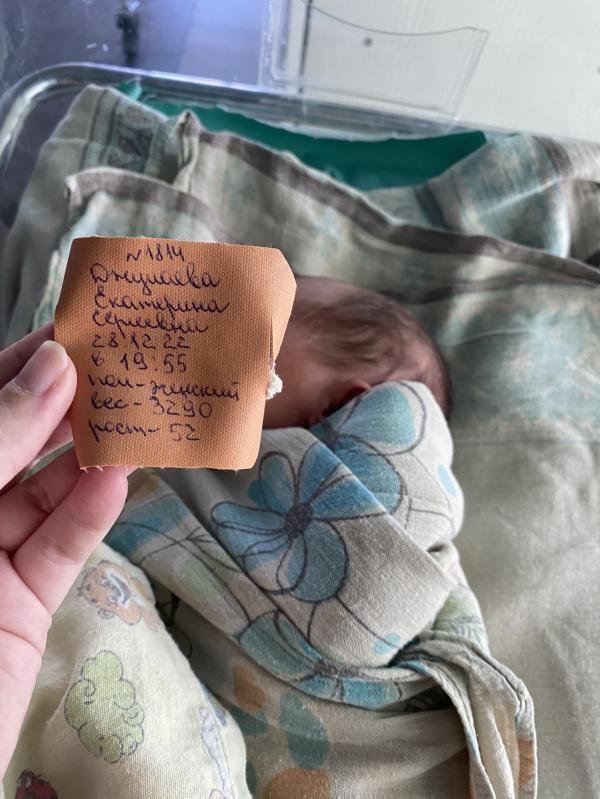 N1814
Джулаева
Екатерина
Сергеевна
28.12.22
в 19:55
пол-женский
вес-3290
рост-52